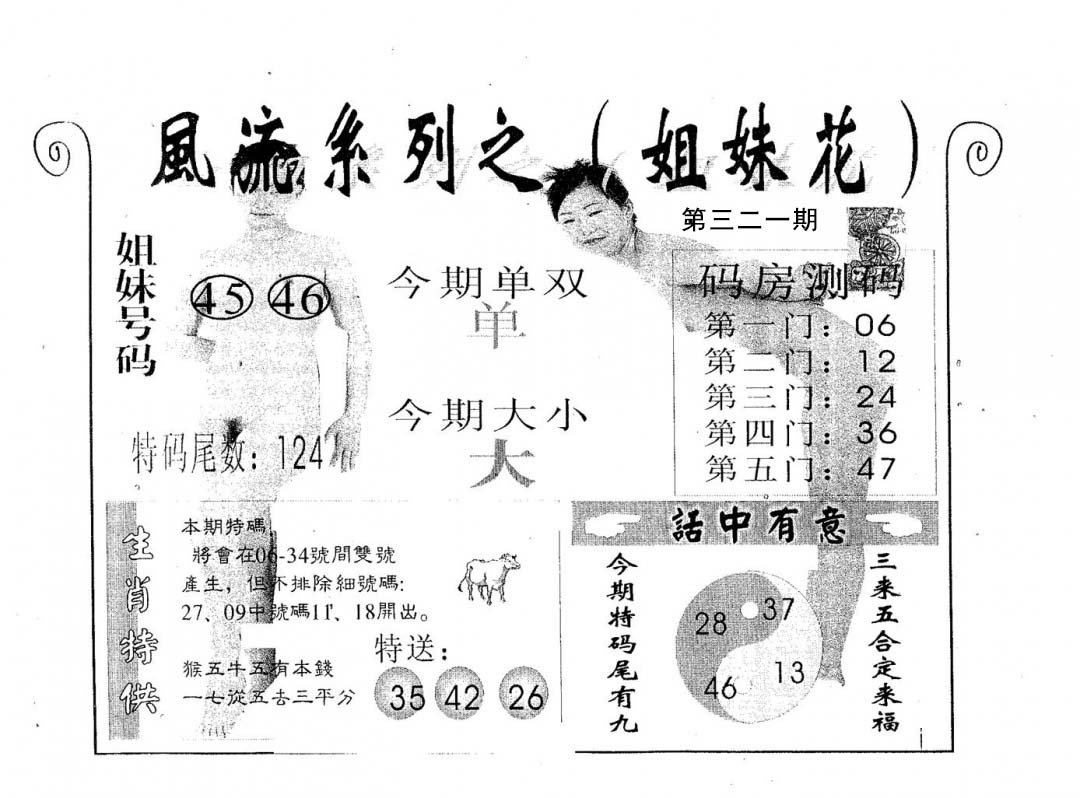 風流系列之（姐妹花）
第三二一期
姐妹号码
45 46
今期单双
单
今期大小
大
特码尾数：124
码房测码
第一门：06
第二门：12
第三门：24
第四门：36
第五门：47
生肖特供
本期特碼
將會在06-34號間雙號
產生，但不排除細號碼：
27、09中號碼11、18開出。
猴五牛五有本錢
一七從五去三平分
特送：
35 42 26
話中有意
今期特码尾有九
28 37
46 13
三来五合定来福